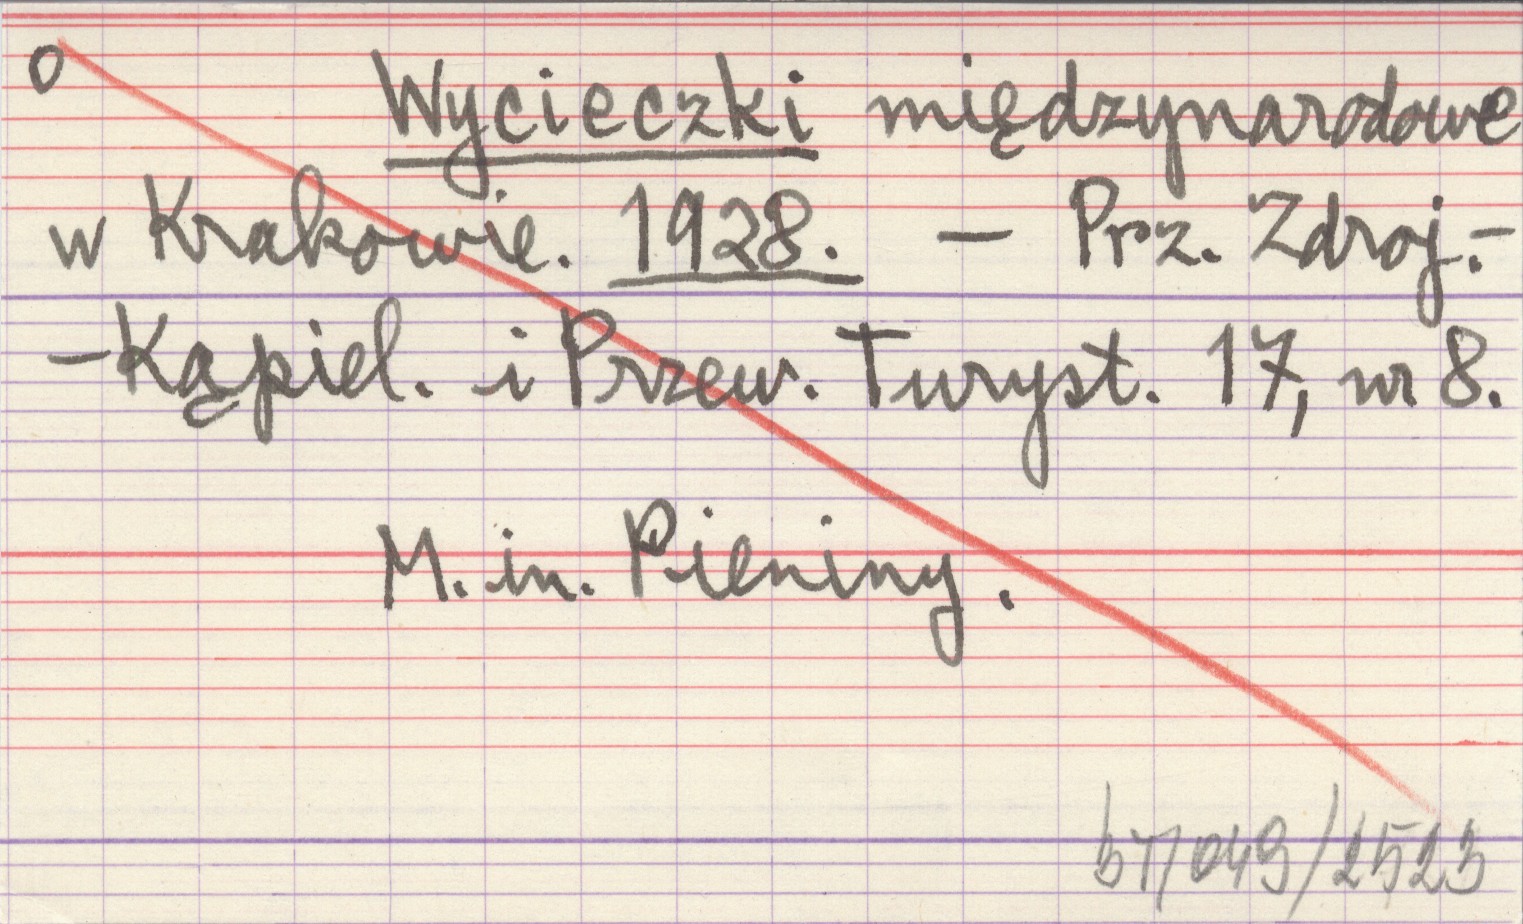 O Wycieczki międzynarodowe
w Krakowie. 1928. — Prz. Zdroj.-
-Kąpiel. i Przew. Turyst. 17, nr 8.
M. in. Pieniny.
bT/049/2523